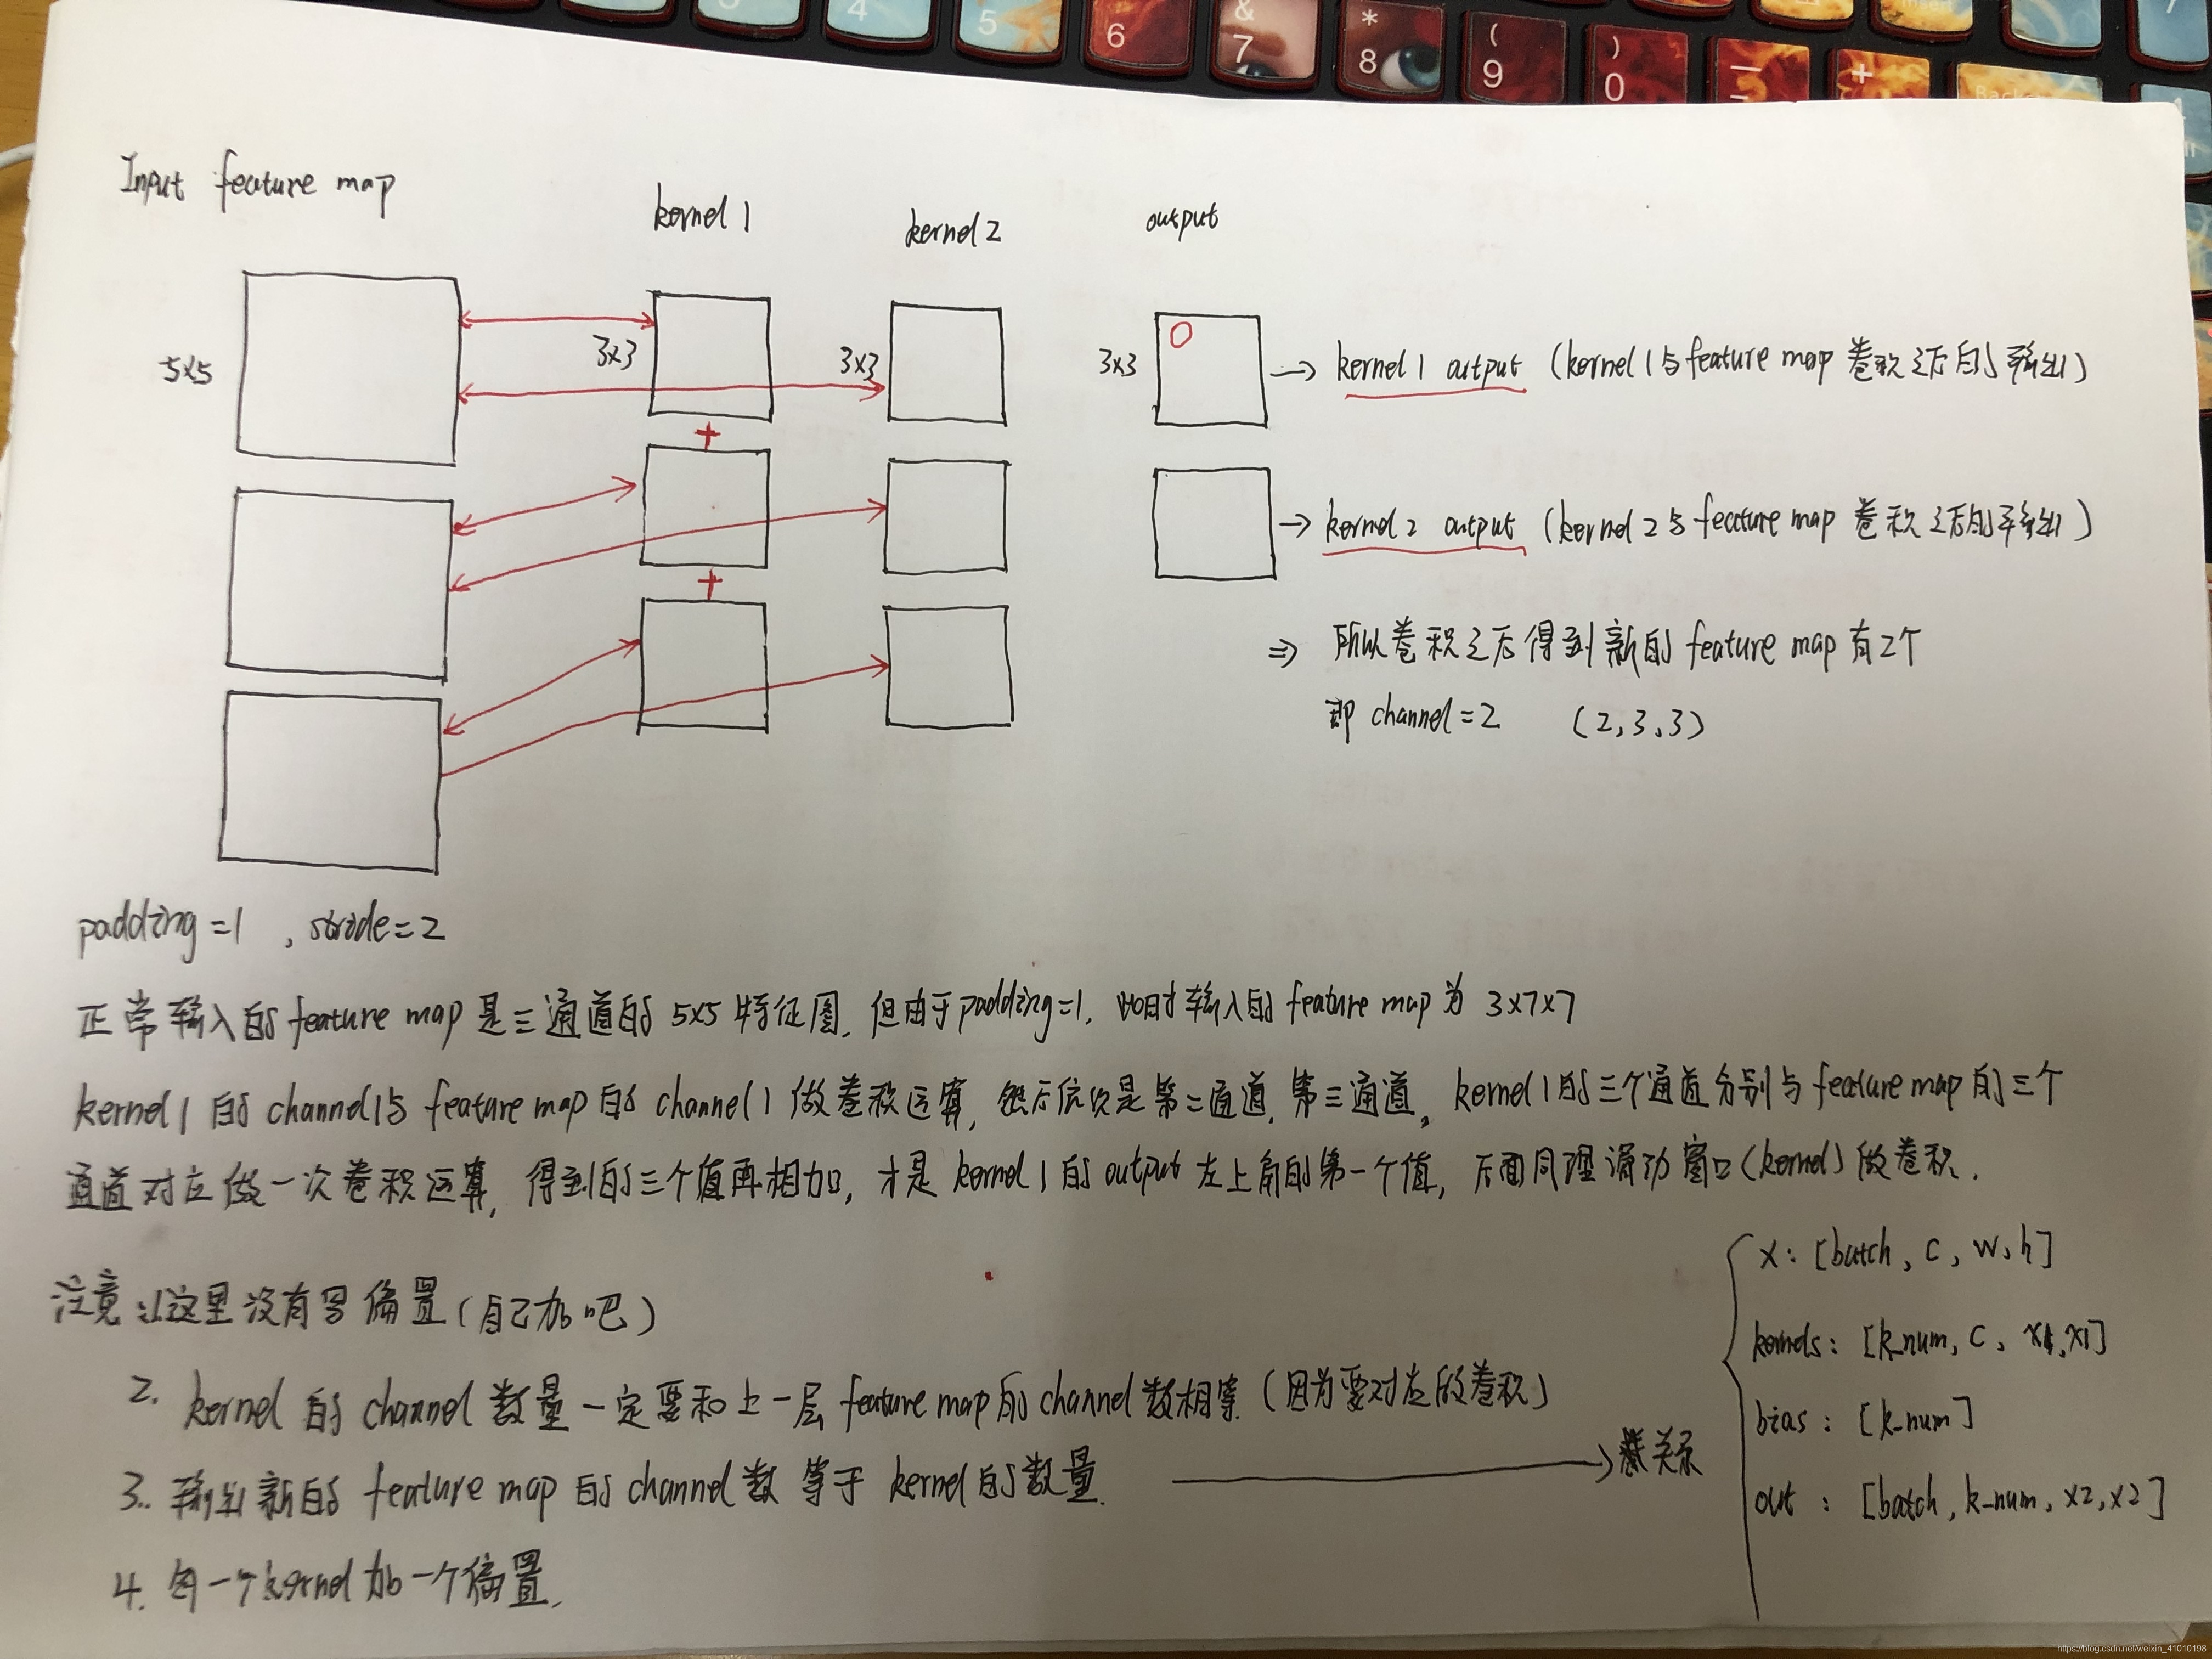 4
5
6
&
7
*
8
(
9
)
0
—
+
Input feature map
kernel 1
kernel 2
output
5x5
3x3
3x3
3x3
→ kernel 1 output (kernel 1与feature map 卷积之后的输出)
+
→ kernel 2 output (kernel 2与feature map 卷积之后的输出)
+
⇒ 所以卷积之后得到新的 feature map 有2个
即 channel=2 (2,3,3)
padding=1 , stride=2
正常输入的 feature map 是三通道的 5x5 特征图, 但由于padding=1, 此时输入的 feature map 为 3x7x7
kernel 1 的 channel 1与 feature map 的 channel 1 做卷积运算, 然后依次是第二通道, 第三通道。 kernel 1的三个通道分别与 feature map 的三个
通道对应做一次卷积运算, 得到的三个值再相加, 才是 kernel 1 的 output 左上角的第一个值, 后面同理滑动窗口(kernel)做卷积.
注意:1.这里没有写偏置(自己加吧)
2. kernel 的 channel 数量一定要和上一层 feature map 的 channel 数相等 (因为要对应做卷积)
3. 输出新的 feature map 的 channel数 等于 kernel 的数量.
→ 关系
4. 每一个kernel 加一个偏置.
x: [batch, c, w, h]
kernels: [k_num, c, x1, x1]
bias: [k_num]
out: [batch, k_num, x2, x2]
https://blog.csdn.net/weixin_41010198